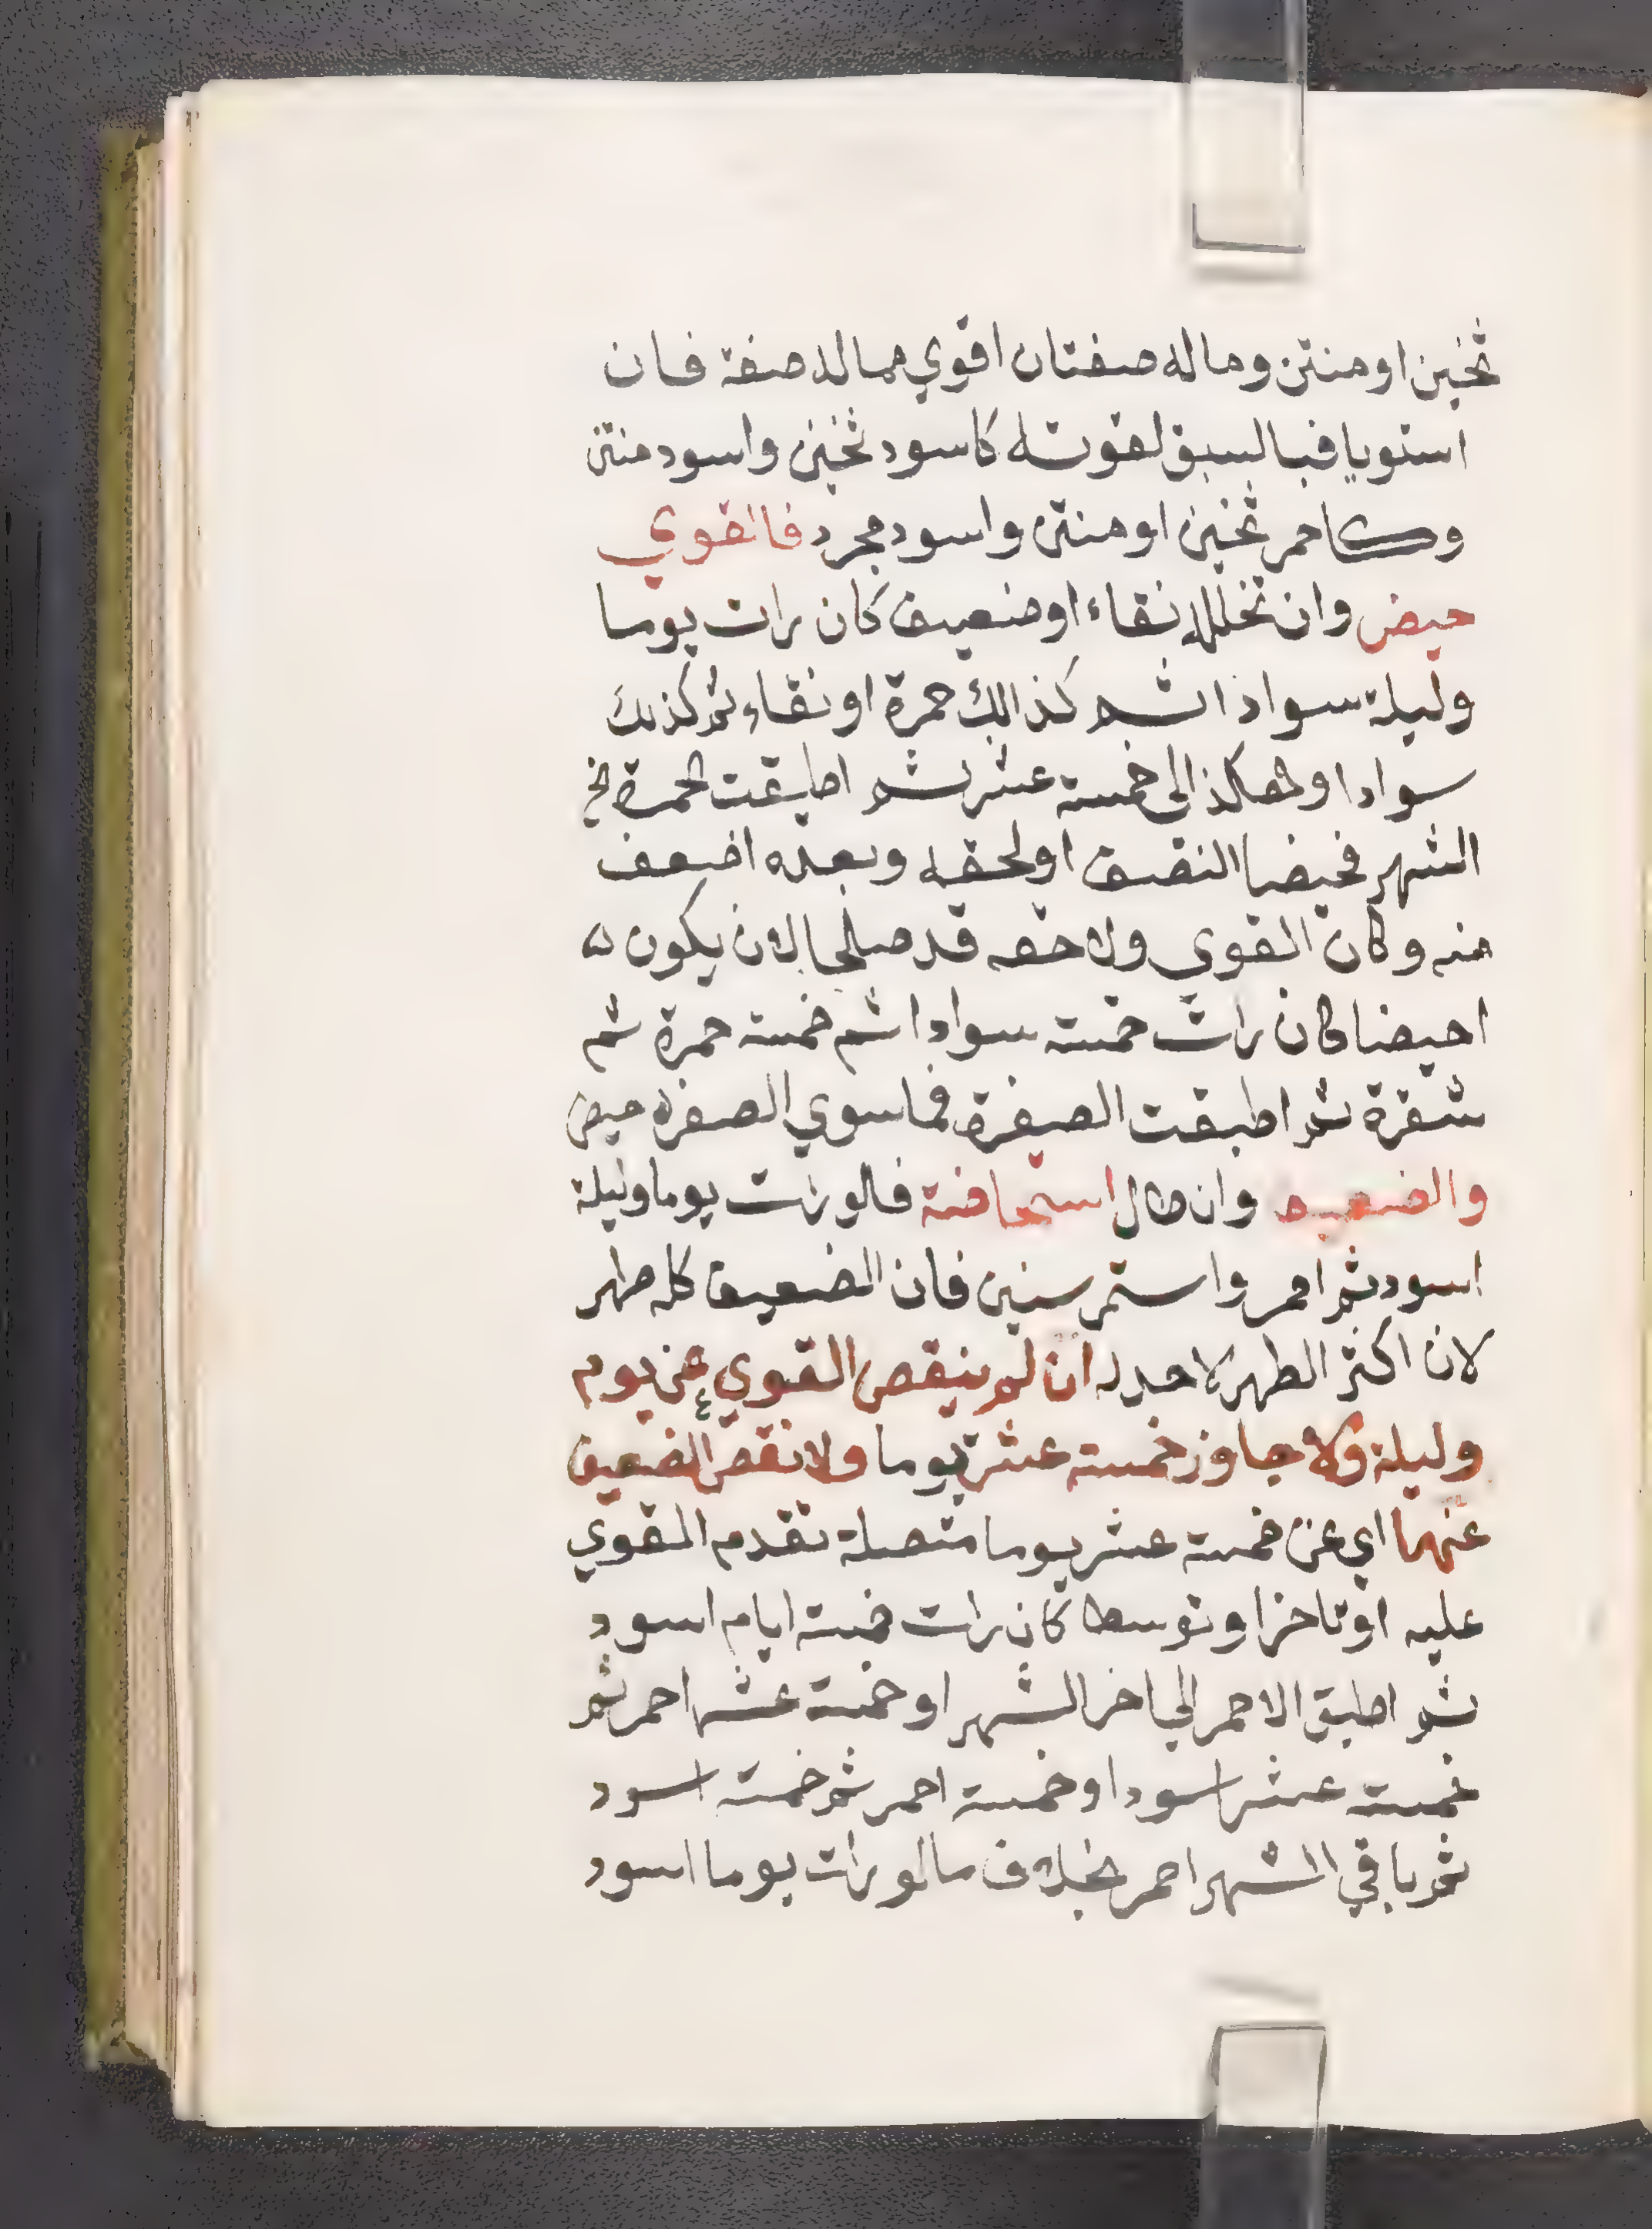 ثخين او منتن وما له صفتان اقوي مما له صفة فان
استويا فبالسبق لقوته كاسود ثخين واسود منتن
وكاحمر ثخين او منتن واسود مجرد فالقوي
حيض وان تخلله نقاء او ضعيف كان رات يوما
وليلة سوادا ثم كذالك حمرة او نقاء ثم كذلك
سوادا وهكذا الى خمسة عشر ثم اطبقت الحمرة
الشهر فحيضها النقيق او لحقه وبعده اضعف
منه وكان القوي ولاحقه قد صلحا لان يكون
احيضا كان رات خمسة سوادا ثم خمسة حمرة ثم
شقرة ثم اطبقت الصفرة فما سوي الصفرة حيض
والضعيف وان طال استحاضة فالو رات يوما وليلة
اسود ثم احمر واستمر سنين فان الضعيف كله طهر
لان اكثر الطهر لا حد له ان لم ينقص القوي عن يوم
وليلة ولا جاوز خمسة عشر يوما ولا نقص الضعيف
عنهما اي عن خمسة عشر يوما متصلة تقدم القوي
عليه او تاخر او توسط كان رات خمسة ايام اسود
ثم اطبق الاحمر الي اخر الشهر او خمسة عشر احمر ثم
خمسة عشر اسود او خمسة احمر ثم خمسة اسود
ثم باقي الشهر احمر بخلاف ما لو رات يوما اسود